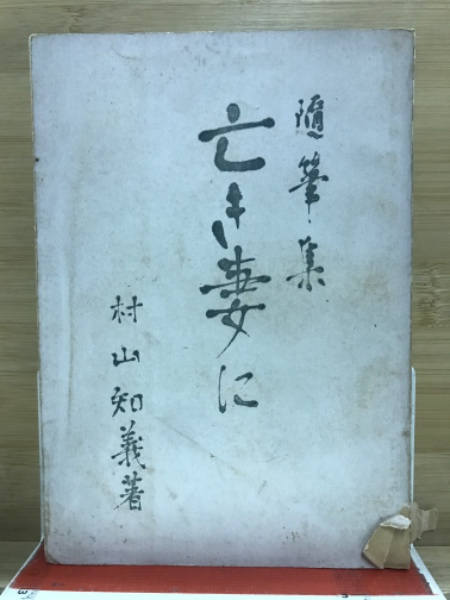 隨筆集
亡き妻に
村山知義著